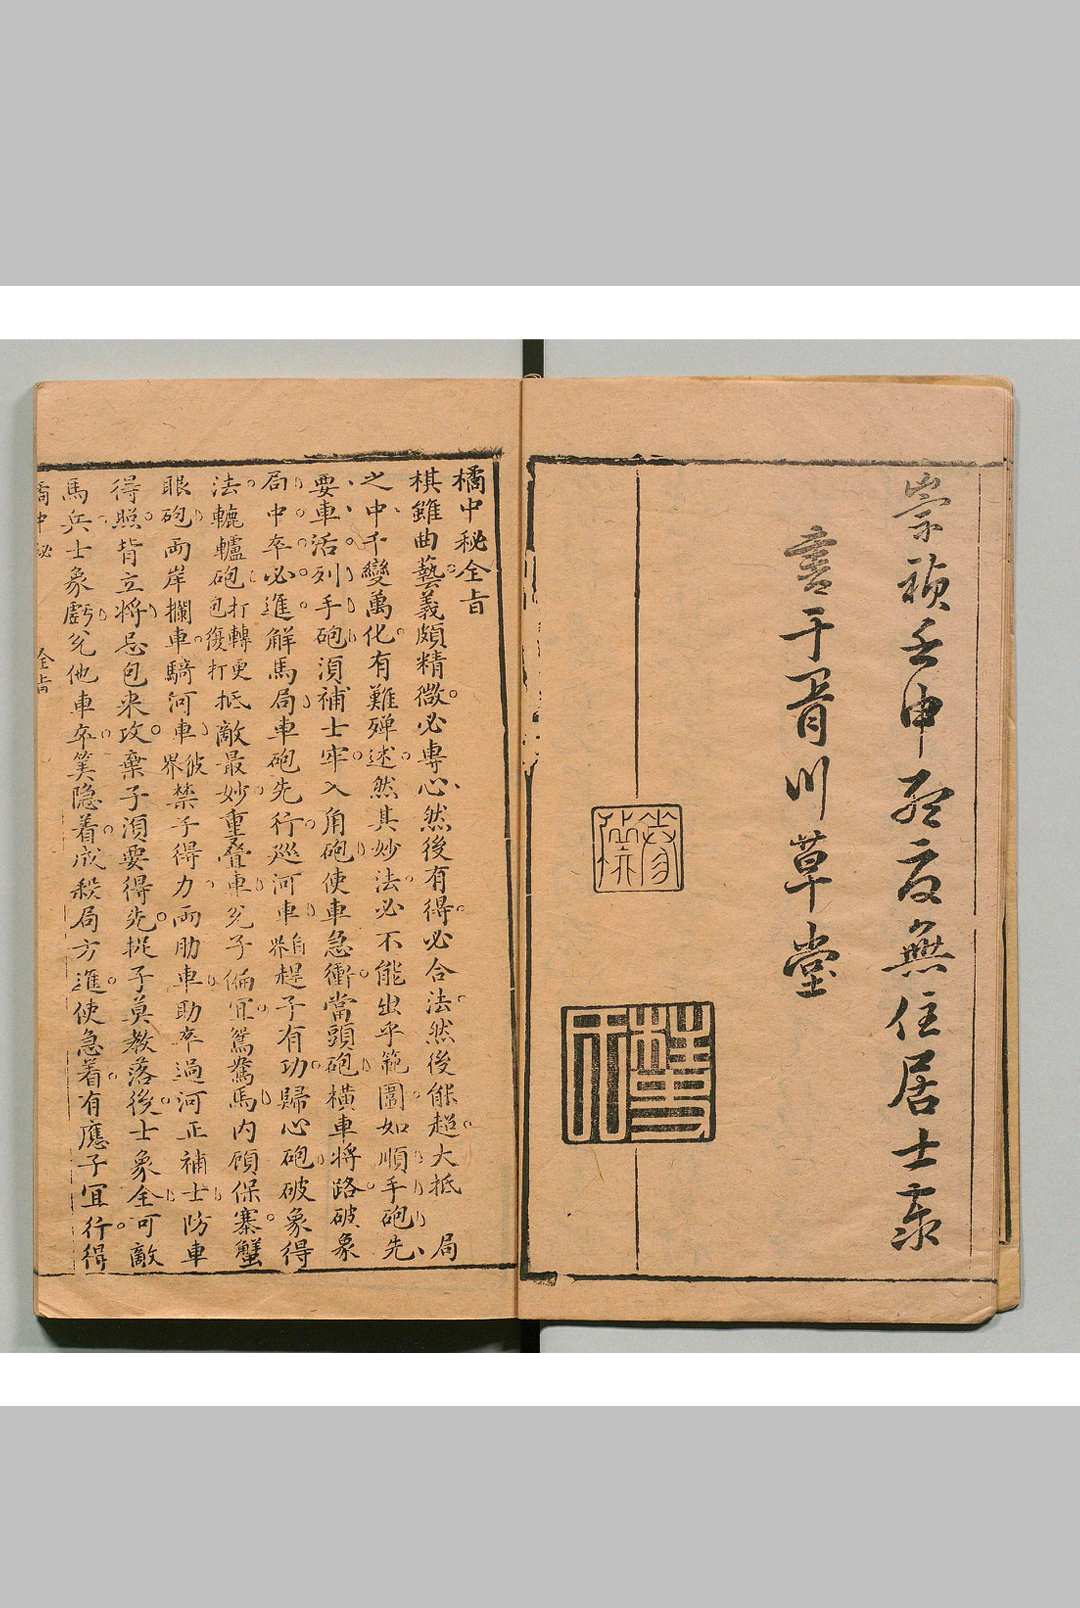 崇禎壬申無住居士
書于胥川草堂
橘中秘全旨
棋雖曲藝義頗精微必專心然後有得必合法然後能超大抵局
之中千變萬化有難殫述然其妙法必不能出乎範圍如順手砲先
要車活列手砲湏補士牢入角砲使車急衝當頭砲橫車將路破象
局中卒必進解馬局車砲先行巡河車自界趕子有功歸心砲破象得
法轆轤砲打轉更包復打抵敵最妙重疊車兌子偏宜鴛鴦馬内顧保寨蟹
眼砲兩岸攔車騎河車彼界禁子得力兩肋車助卒過河正補士防車
得照背立將忌包來攻棄子湏要得先捉子莫教落後士象全可敵
馬兵士象虧兌他車卒筭隐着成殺局方進使急着有應子宜行得
橘中秘 全旨